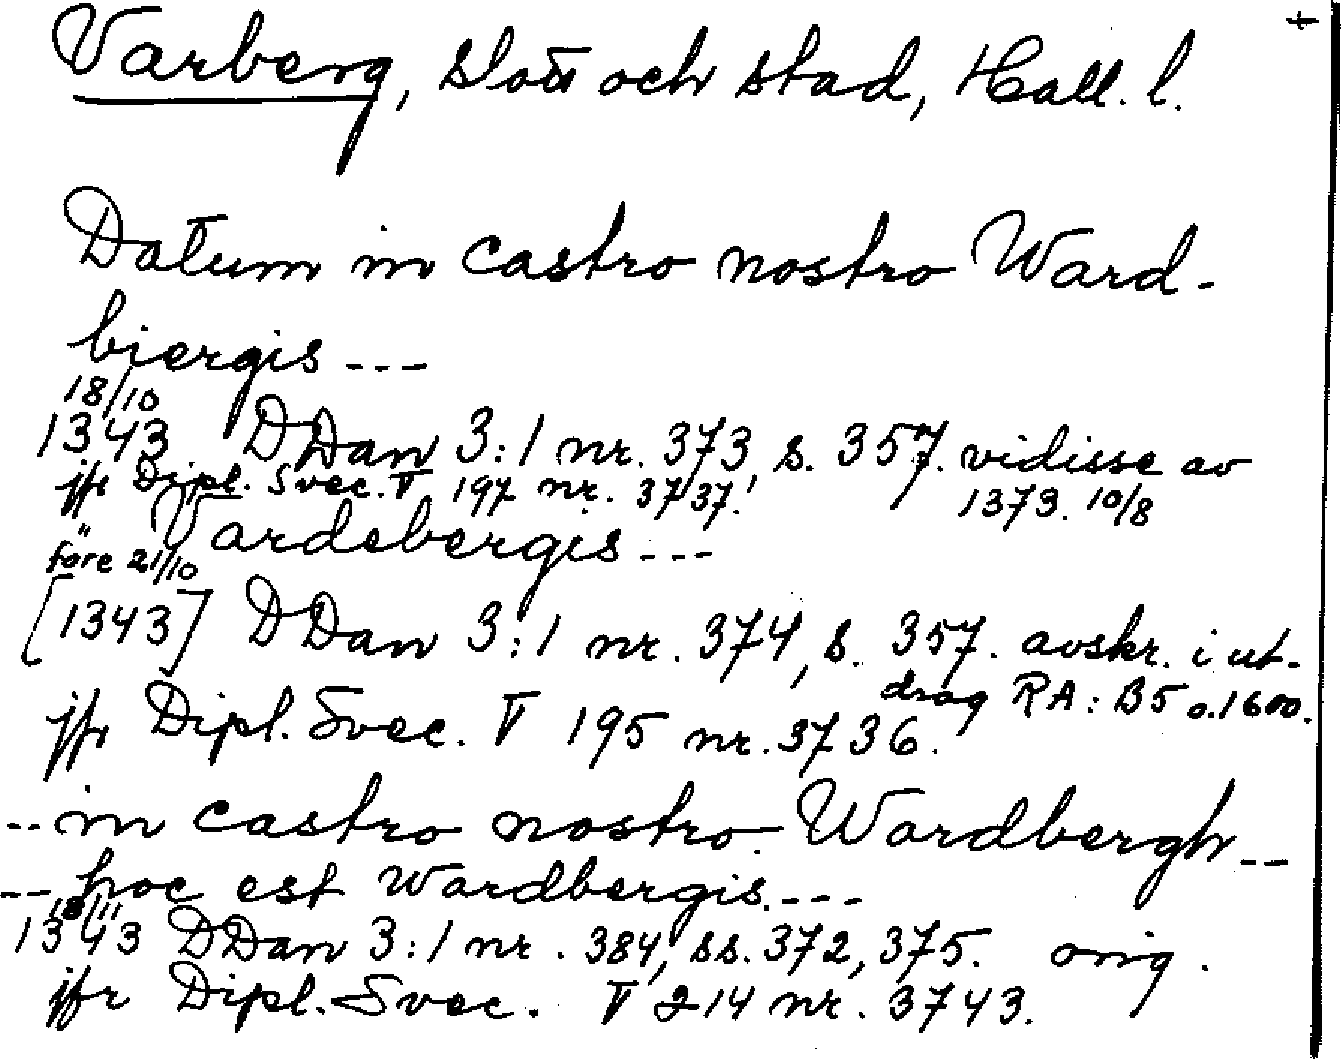 Varberg, slott och stad, Hall. l.
Datum in castro nostro Ward-
biergis ---
18/10
1343 DDan 3:1 nr. 373 s. 357. vidisse av
jfr Dipl. Svec. V 197 nr. 3737! 1373. 10/8
Vardebergis ---
före 21/10
[1343] DDan 3:1 nr. 374, s. 357. avskr. i ut-
drag RA: B5 o. 1600.
jfr Dipl. Svec. V 195 nr. 3736.
-- in castro nostro Wardbergh --
-- hoc est Wardbergis. ---
18/11
1343 DDan 3:1 nr. 384, ss. 372, 375. orig.
jfr Dipl. Svec. V 214 nr. 3743.